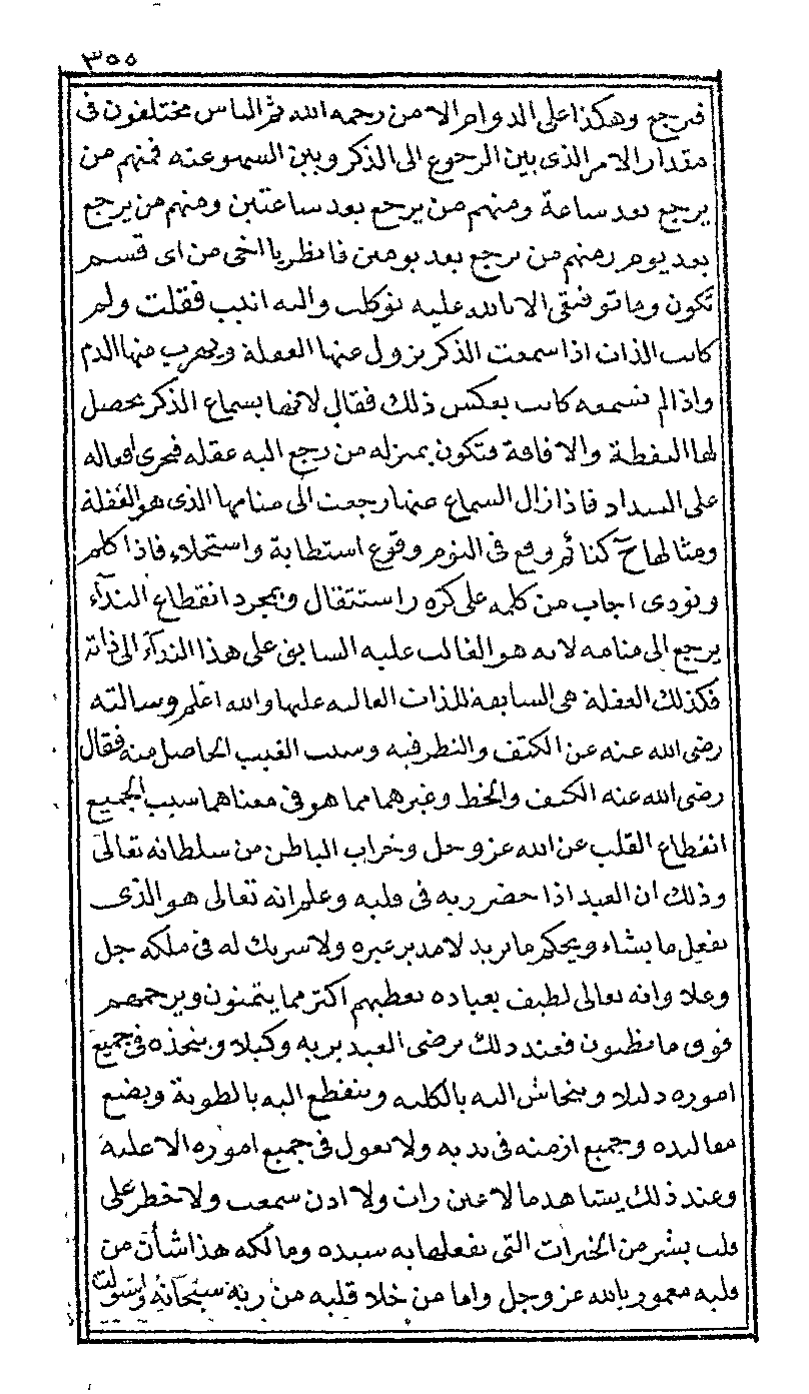 ٣٥٥
فيرجع وهكذا على الدوام الا من رحمه الله ثم الناس مختلفون فى
مقدار الامر الذى بين الرجوع الى الذكر وبين السهو عنه فمنهم من
يرجع بعد ساعة ومنهم من يرجع بعد ساعتين ومنهم من يرجع
بعد يوم ومنهم من يرجع بعد يومين فانظر يا اخى من اى قسم
تكون وما توفيقى الا بالله عليه توكلت واليه انيب فقلت ولم
كانت الذات اذا سمعت الذكر يزول عنها الغفلة ويهرب منها الدم
واذا لم تسمعه كانت بعكس ذلك فقال لانها بسماع الذكر يحصل
لها اليقظة والافاقة فتكون بمنزله من رجع اليه عقله فيجرى افعاله
على السداد فاذا زال السماع عنها رجعت الى منامها الذى هو الغفلة
ومثالها ح كنائم وقع فى النوم وقوع استطابة واستحلاء فاذا كلم
ونودى اجاب من كلمه على كره واستثقال وبمجرد انقطاع الندآء
يرجع الى منامه لانه هو الغالب عليه السابق على هذا الندآء الى ذاته
فكذلك الغفلة هى السابقة للذات الغالبه عليها والله اعلم وسالته
رضى الله عنه عن الكتف والنظر فيه وسبب الغيب الحاصل منه فقال
رضى الله عنه الكتف والخط وغيرهما مما هو فى معناهما سبب الجميع
انقطاع القلب عن الله عز وجل وخراب الباطن من سلطانه تعالى
وذلك ان العبد اذا حضر ربه فى قلبه وعلم انه تعالى هو الذى
يفعل ما يشاء ويحكم ما يريد لا مدبر غيره ولا شريك له فى ملكه جل
وعلا وانه تعالى لطيف بعباده يعطيهم اكثر مما يتمنون ويرحمهم
فوق ما يظنون فعند ذلك يرضى العبد بربه وكيلا ويتخذه فى جميع
اموره دليلا وينحاش اليه بالكليه وينقطع اليه بالطوية ويضع
مقاليده وجميع ازمته فى يديه ولا يعول فى جميع اموره الا عليه
وعند ذلك يشاهد ما لا عين رات ولا اذن سمعت ولا خطر على
قلب بشر من الخيرات التى يفعلها به سيده ومالكه هذا شأن من
قلبه معمور بالله عز وجل واما من خلا قلبه من ربه سبحانه واستولت